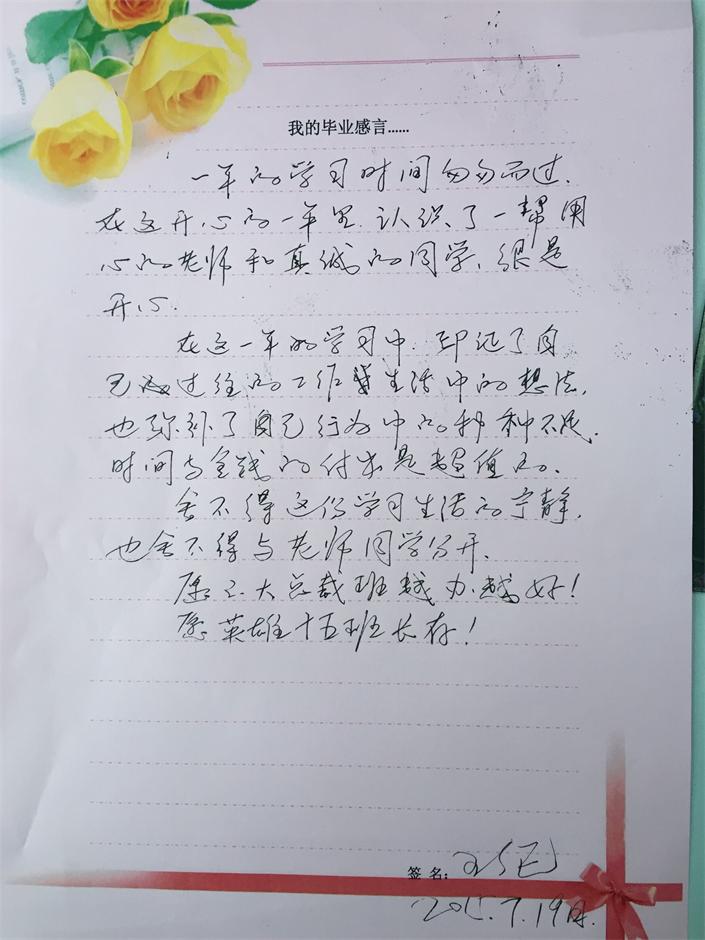 我的毕业感言......
一年的学习时间匆匆而过.
在这开心的一年里.认识了一帮用
心的老师和真诚的同学、很是
开心.
在这一年的学习中.印证了自
己过往的工作生活中的想法,
也弥补了自己行为中的种种不足.
时间与金钱的付出是超值的.
舍不得这份学习生活的宁静,
也舍不得与老师同学分开.
愿大总裁班越办越好!
愿英雄十五班长存!
签名:
7.19日.